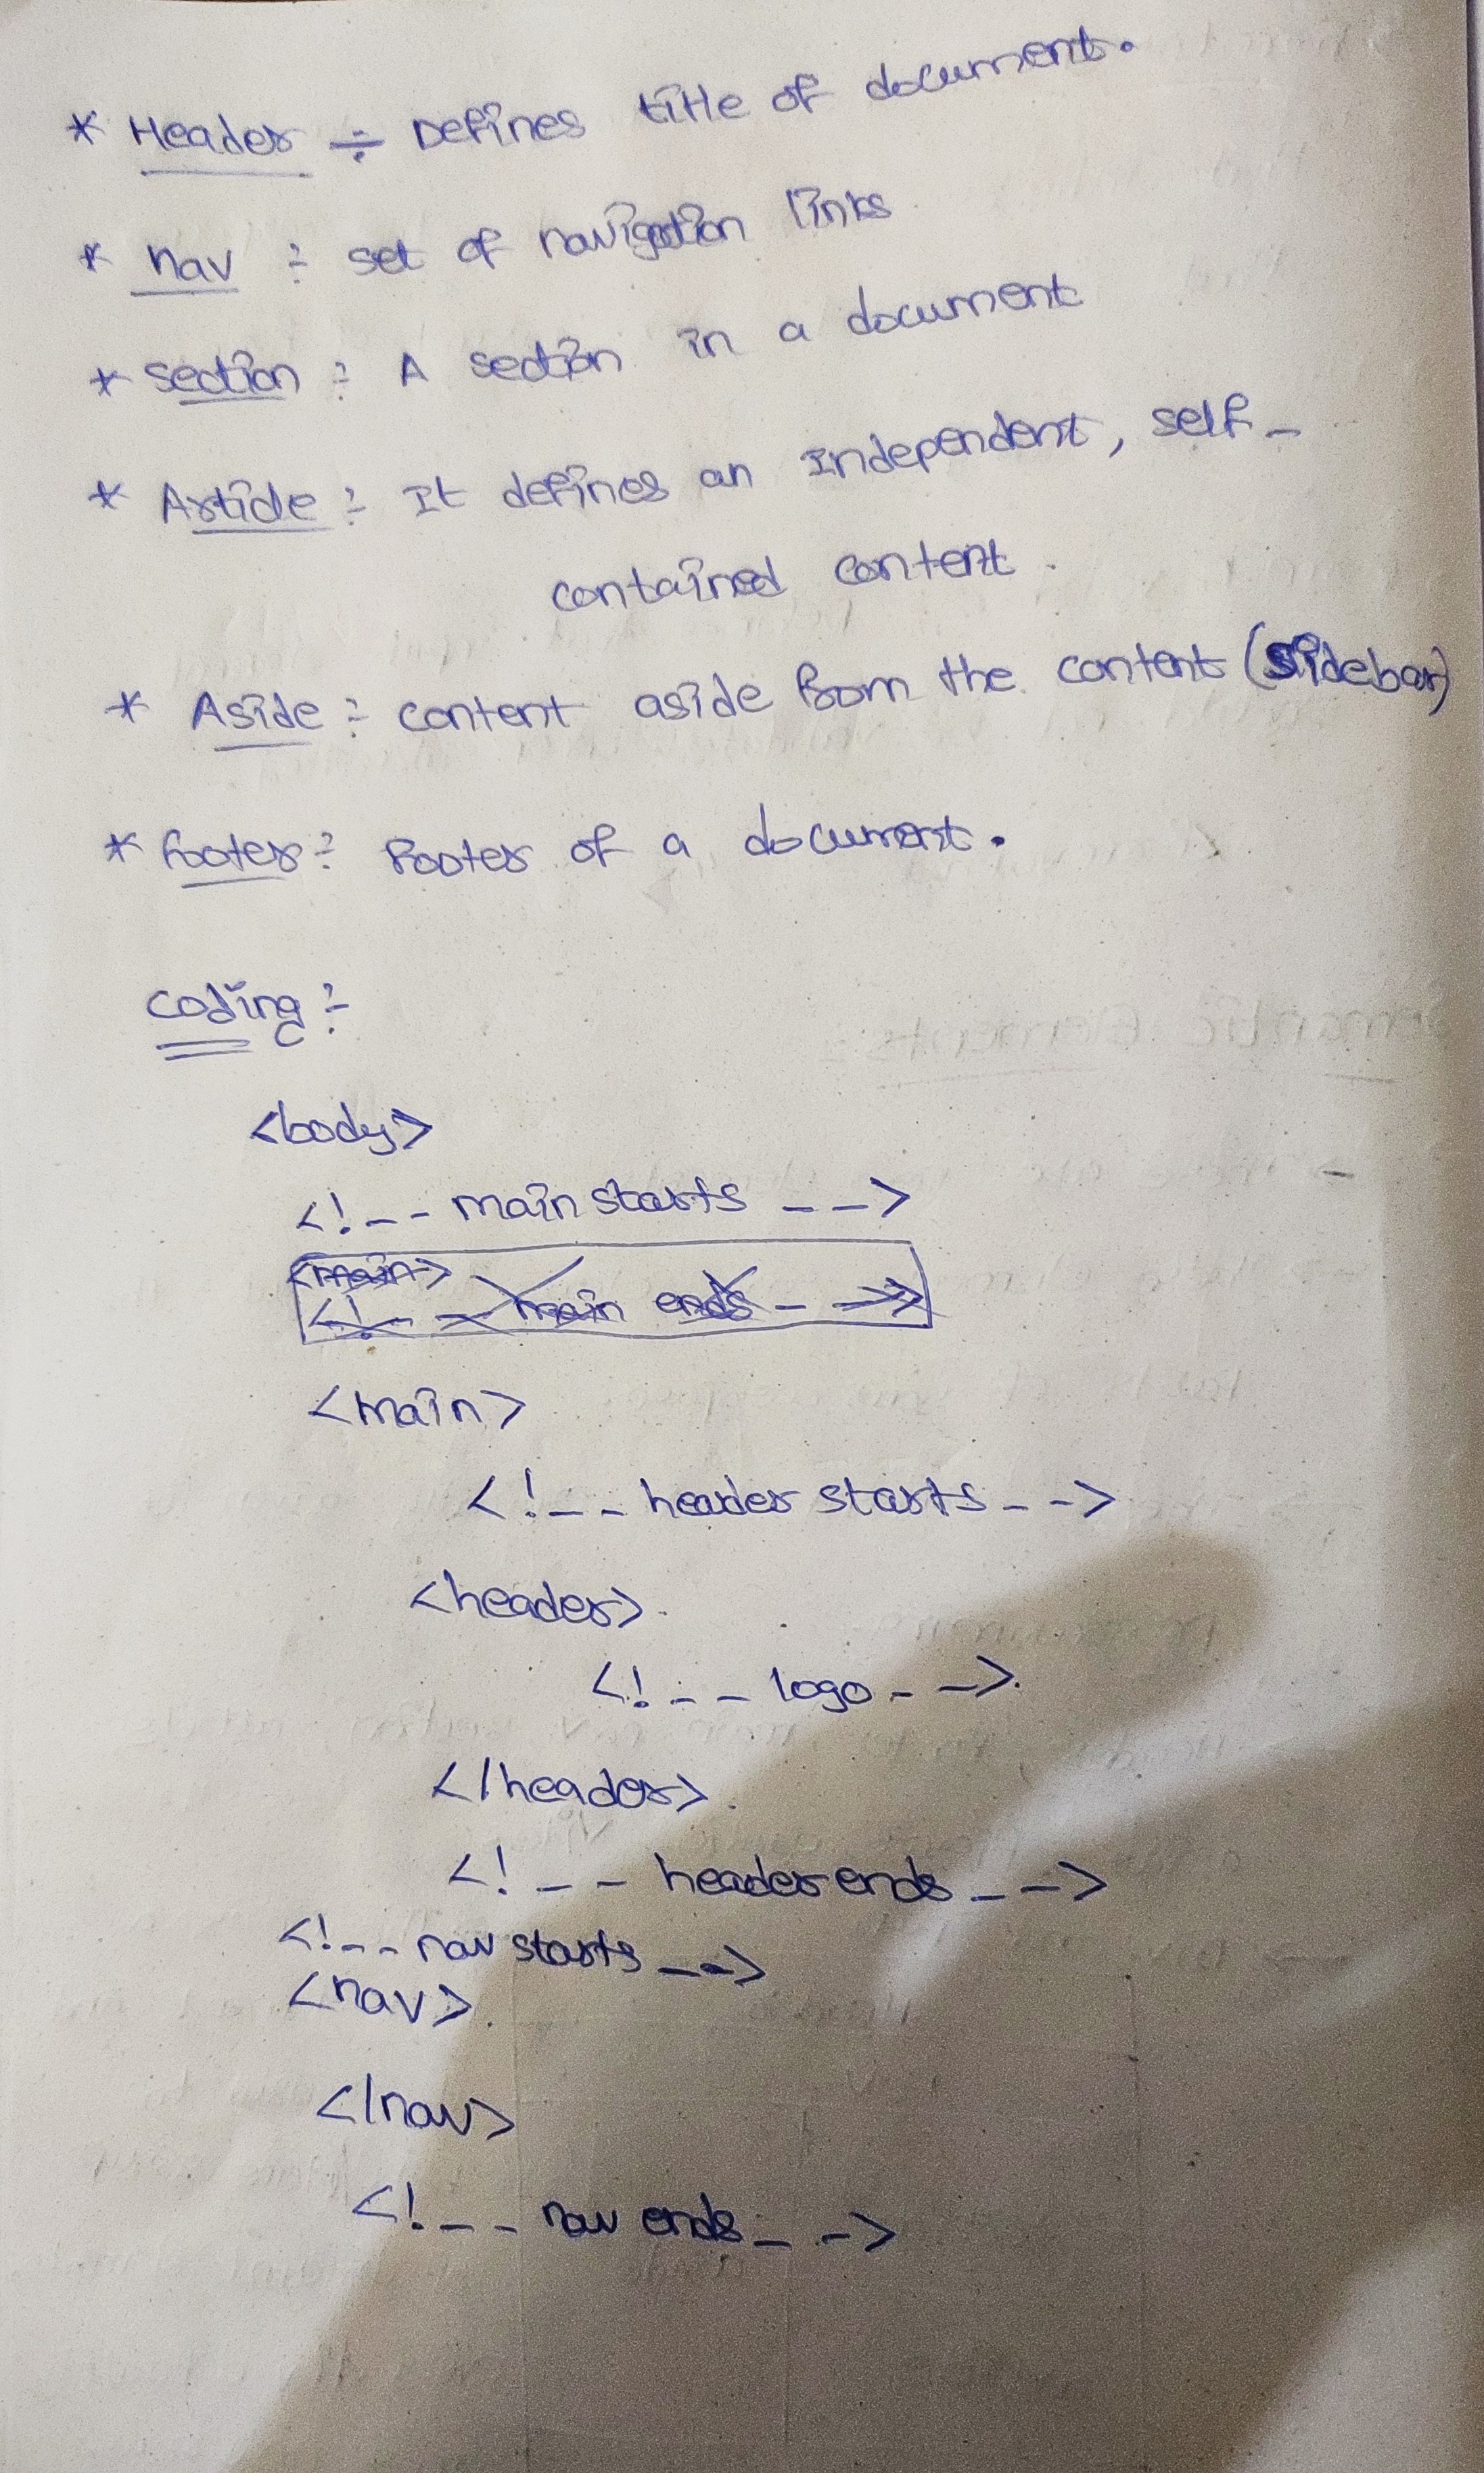 * Header :- Defines title of document.
* nav :- set of navigation links
* section :- A section in a document
* Article :- It defines an Independent, self-
contained content.
* Aside :- content aside from the content (sidebar)
* footer :- Footer of a document.
coding :-
<body>
<!-- main starts -->
<main>
<!-- main ends -->
<main>
<!-- header starts -->
<header>
<!-- logo -->
</header>
<!-- header ends -->
<!-- nav starts -->
<nav>
</nav>
<!-- nav ends -->